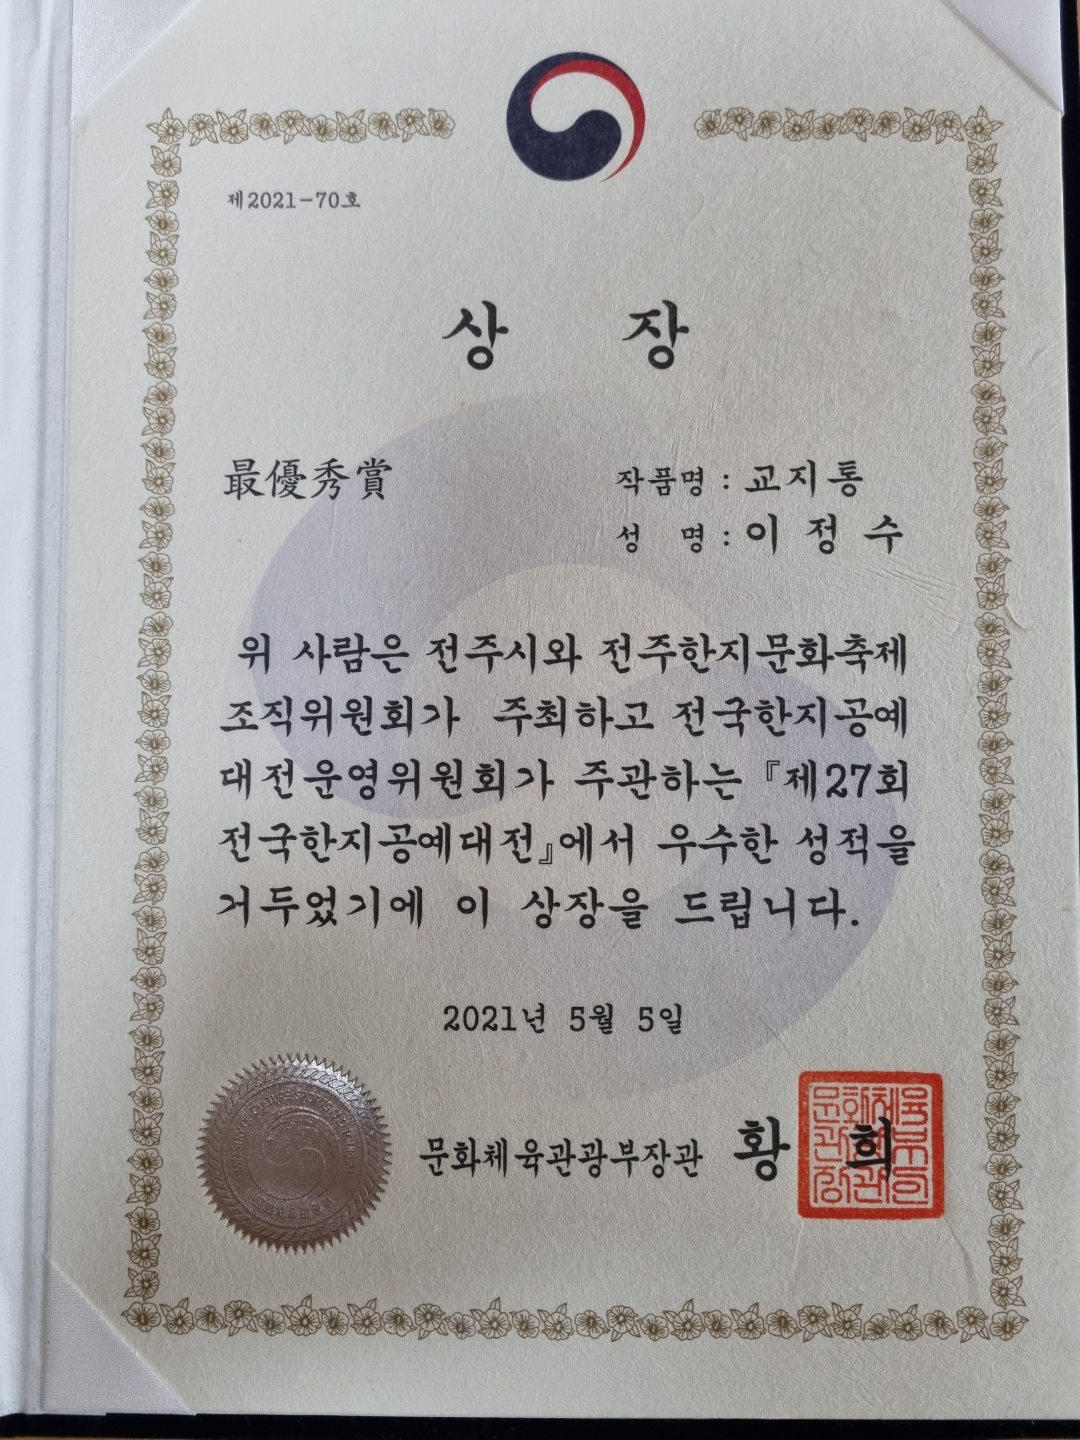 제2021-70호
상 장
最優秀賞
작품명 : 교지통
성 명 : 이 정 수
위 사람은 전주시와 전주한지문화축제
조직위원회가 주최하고 전국한지공예
대전운영위원회가 주관하는 『제27회
전국한지공예대전』에서 우수한 성적을
거두었기에 이 상장을 드립니다.
2021년 5월 5일
문화체육관광부장관 황 희